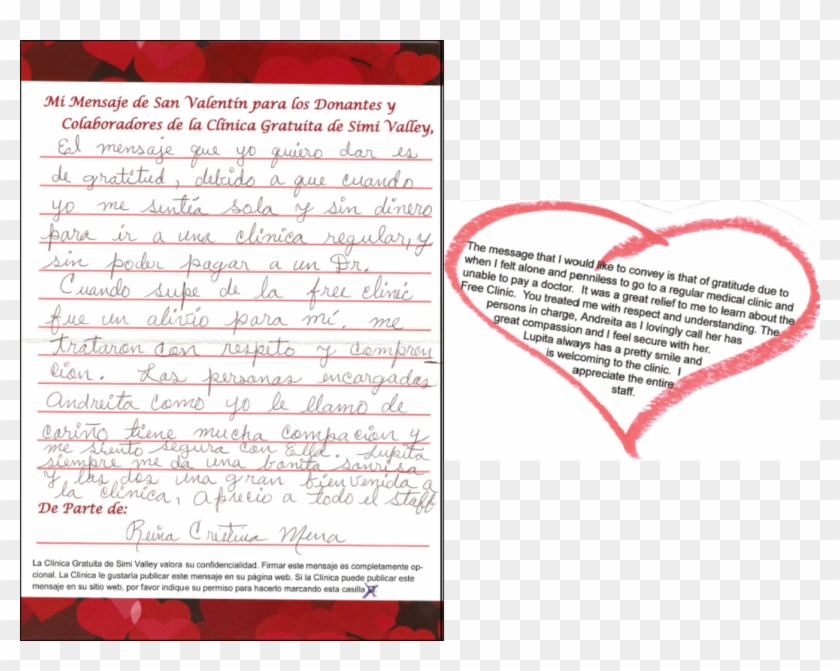 Mi Mensaje de San Valentín para los Donantes y
Colaboradores de la Clínica Gratuita de Simi Valley,
Eal mensaje que yo quiero dar es
de gratitud, debido a que cuando
yo me sentía sola y sin dinero
para ir a una clinica regular, y
sin poder pagar a un Dr.
Cuando supe de la free clinic
fue un alivio para mí. me
trataron con respito y compren
cion. Las personas encargadas
Andreita como yo le llamo de
cariño tiene mucha compacion y
me siento segura con Ella. Lupita
siempre me da una bonita sonrisa
Y las dos una gran bienvenida a
la clinica, Aprecio a todo el staff
De Parte de:
Reina Cristina Mena
La Clínica Gratuita de Simi Valley valora su confidencialidad. Firmar este mensaje es completamente op-
cional. La Clínica le gustaria publicar este mensaje en su página web. Si la Clínica puede publicar este
mensaje en su sitio web, por favor indique su permiso para hacerlo marcando esta casilla
The message that I would like to convey is that of gratitude due to
when I felt alone and penniless to go to a regular medical clinic and
unable to pay a doctor. It was a great relief to me to learn about the
Free Clinic. You treated me with respect and understanding. The
persons in charge, Andreita as I lovingly call her has
great compassion and I feel secure with her.
Lupita always has a pretty smile and
is welcoming to the clinic. I
appreciate the entire
staff.